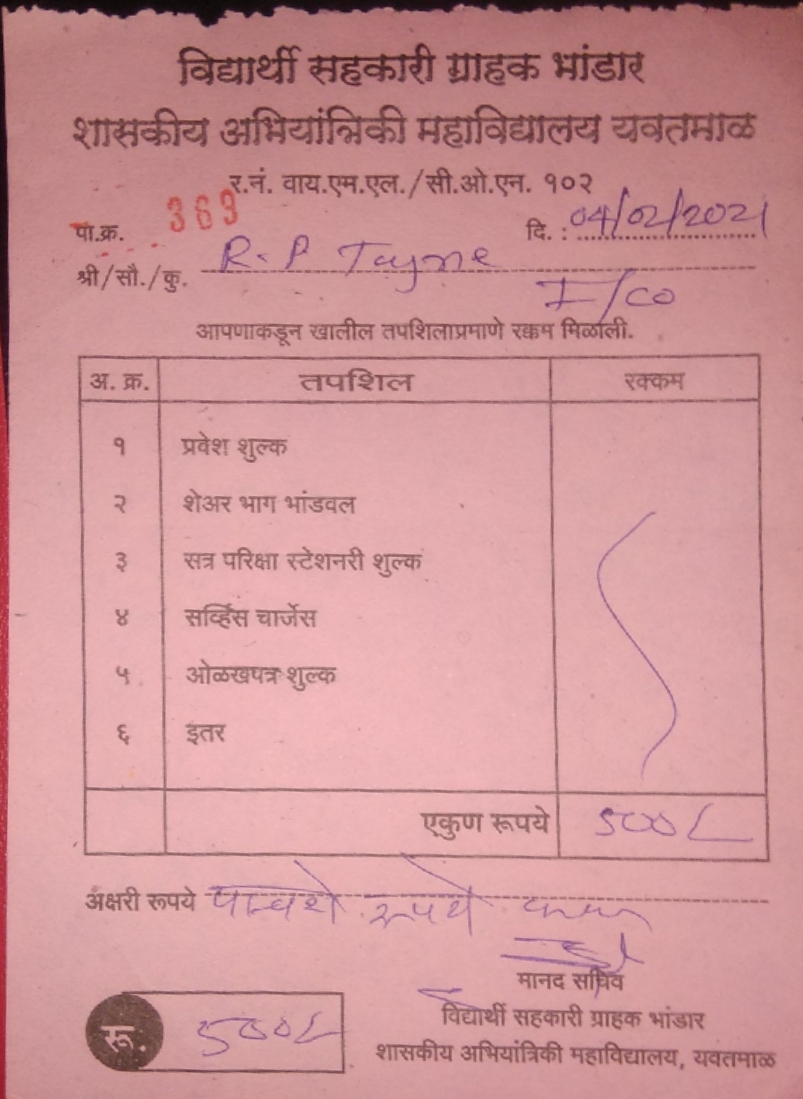 विद्यार्थी सहकारी ग्राहक भांडार
शासकीय अभियांत्रिकी महाविद्यालय यवतमाळ
र.नं. वाय.एम.एल./सी.ओ.एन. १०२
पा.क्र. 369 दि. : 04/02/2021
श्री/सौ./कु. R.P Tayne
I/CO
आपणाकडून खालील तपशिलाप्रमाणे रक्कम मिळाली.
अ. क्र. तपशिल रक्कम
१ प्रवेश शुल्क
२ शेअर भाग भांडवल
३ सत्र परिक्षा स्टेशनरी शुल्क
४ सर्व्हिस चार्जेस
५ ओळखपत्र शुल्क
६ इतर
एकुण रूपये 500/-
अक्षरी रूपये पाचशे रूपये
मानद सचिव
विद्यार्थी सहकारी ग्राहक भांडार
रू. 500/-
शासकीय अभियांत्रिकी महाविद्यालय, यवतमाळ